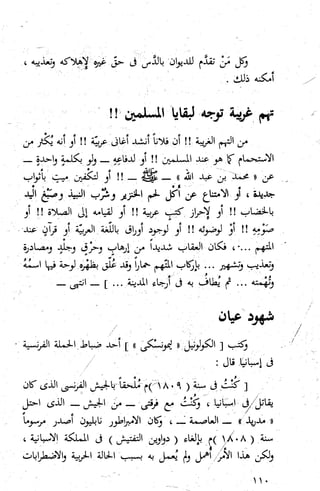 وكل مَنْ تقدَّم للديوان بالدَّس فى حقّ غيره لإهلاكه وتعذيبه ،
أمكنه ذلك .
تهم غريبة توجه لبقايا المسلمين !!
من التهم الغريبة !! أن فلاناً أنشد أغانى عربيّة !! أو أنه يُكثر من
الاستحمام كما هو عند المسلمين !! أو لدفاعه — ولو بكلمةٍ واحدةٍ —
عن « محمد بن عبد الله » — ﷺ — !! أو لتكفين ميتٍ بأثواب
جديدة ، أو الامتناع عن أكْل لحم الخنزير وشُرْب النبيذ وصَبْغ اليد
بالخضاب !! أو لإحراز كتبٍ عربية !! أو لقيامه إلى الصلاة !! أو
صَوْمِهِ !! أوْ لوضوئه !! أو لوجود أوراق باللّغة العربيّة أو قرآنٍ عند
المتهم ... ، فكان العقاب شديداً من إرهاب وحرْقٍ وجلْدٍ ومصادرة
وتعذيب وتشهير ... بإركاب المتّهم حماراً وقد عُلّق بظهْره لوحة فيها اسمُهُ
وتُهْمته ... ثم يُطافُ به فى أرجاء المدينة ... ] — انتهى —
شهود عيان
وكتب [ الكولونيل « ليمونسكى » ] أحد ضباط الحملة الفرنسية
فى إسبانيا قال :
[ كُنْتُ فى سنة ( ١٨٠٩ )م مُلْحَقاً بالجيش الفرنسى الذى كان
يقاتل فى اسبانيا ، وكُنْتُ مع فرقتى — من الجيش — الذى احتل
« مدريد » — العاصمة — ، وكان الامبراطور نابليون أصدر مرسوماً
سنة ( ١٨٠٨ )م بإلغاء ( دواوين التفتيش ) فى المملكة الاسبانية ،
ولكن هذا الأمْر أُهمل ولم يُعمل به بسبب الحالة الحربية والاضطرابات
١١٠